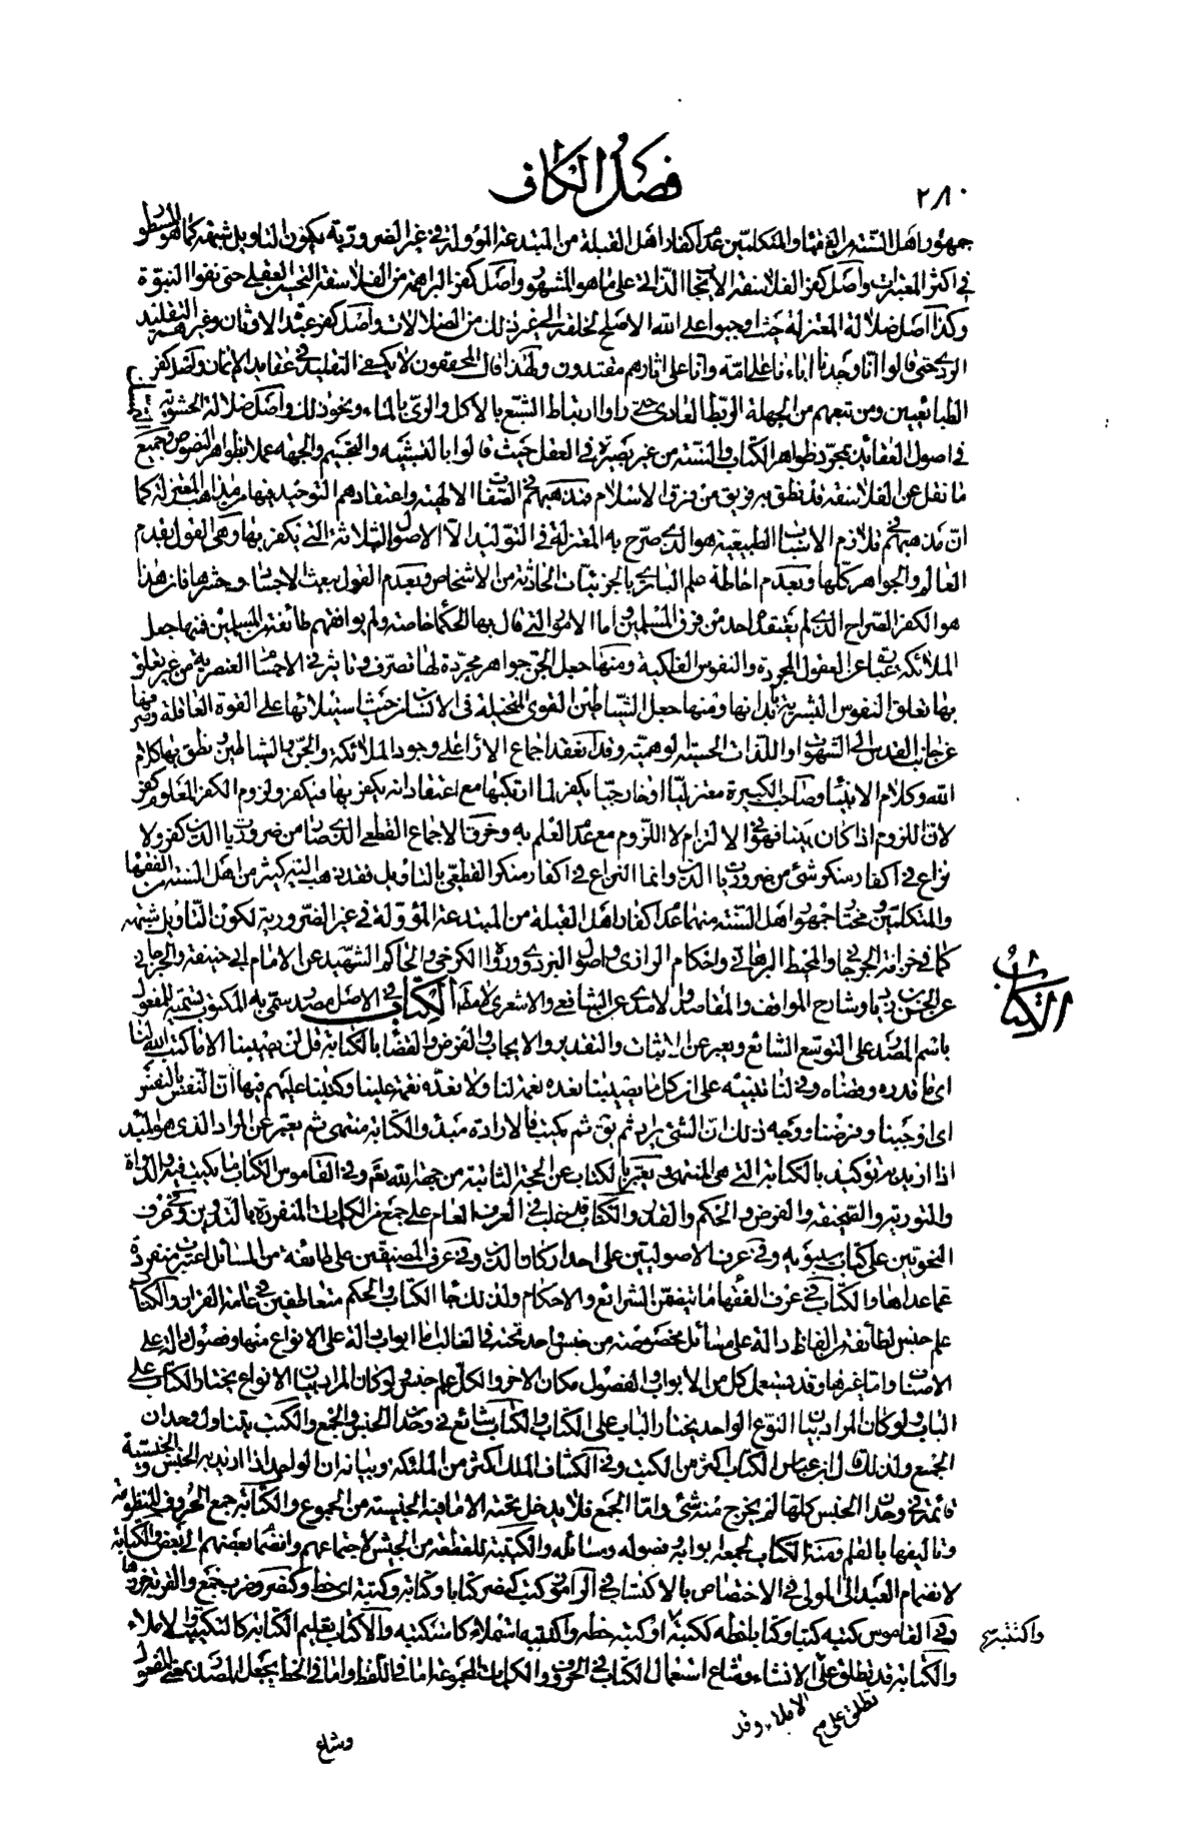 فصل الكاف
٢٨٠
جمهور اهل السنة من الفقهاء والمتكلمين عدم اكفار اهل القبلة من المبتدعة المؤولة في غير الضرورية بكون التأويل شبهة كما هو المسطور
في اكثر المعتبرات واصل كفر الفلاسفة الايجاب الذاتي على ما هو المشهور واصل كفر البراهمة من الفلاسفة التحسين العقلي حتى نفوا النبوة
وكذا اصل ضلالة المعتزلة حيث اوجبوا على الله الاصلح لخلقه الى غير ذلك من الضلالات واصل كفر عبدة الاوثان وغيرهم التقليد
الردي حتى قالوا انا وجدنا اباءنا على امة وانا على اثارهم مقتدون ولهذا قال المحققون لا يكفي التقليد في عقايد الايمان واصل كفر
الطبائعيين ومن تبعهم من الجهلة الربط العادي حتى راوا ارتباط الشبع بالاكل والري بالماء ونحو ذلك واصل ضلالة الحشوية
في اصول العقائد بمجرد ظواهر الكتاب والسنة من غير بصيرة في العقل حيث قالوا بالتشبيه والتجسيم والجهة عملا بظواهر النصوص وجميع
ما نقل عن الفلاسفة قد نطق به فريق من فرق الاسلام فمذهبهم في الصفات الالهية واعتقادهم التوحيد فيها من مذاهب المعتزلة كما
ان مذهبهم في تلازم الاسباب الطبيعية هو الذي صرح به المعتزلة في التوليد الا الاصول الثلاثة التي يكفر بها وهي القول بقدم
العالم والجواهر كلها وبعدم احاطة علم الباري بالجزئيات الحادثة من الاشخاص وبعدم القول ببعث الاجساد وحشرها فان هذا
هو الكفر الصراح الذي لم يعتقده احد من فرق المسلمين واما الامور التي قال بها الحكماء خاصة ولم يوافقهم طائفة من المسلمين فمنها جعل
الملائكة عبارة عن العقول المجردة والنفوس الفلكية ومنها جعل الجن جواهر مجردة لها تصرف وتاثير في الاجسام العنصرية من غير تعلق
بها تعلق النفوس البشرية بابدانها ومنها جعل الشياطين القوى المتخيلة في الانسان من حيث استيلائها على القوة العاقلة وصرفها
عن جانب القدس الى الشهوات واللذات الحسية الوهمية وقد انعقد اجماع الاراء على وجود الملائكة والجن والشياطين ونطق بها كلام
الله وكلام الانبياء وصاحب الكبيرة معتزليا او خارجيا يكفر لما ارتكبها مع اعتقاد انه يكفر بها فيكفر ولزوم الكفر المعلوم كفر
لان اللزوم اذا كان بينا فهو في الالتزام لا اللزوم مع عدم العلم به وخرق الاجماع القطعي الذي صار من ضروريات الدين كفر ولا
نزاع في اكفار منكر شئ من ضروريات الدين وانما النزاع في اكفار منكر القطعي بالتاويل فقد ذهب اليه كثير من اهل السنة من الفقهاء
والمتكلمين ومختار جمهور اهل السنة منهما عدم اكفار اهل القبلة من المبتدعة المؤولة في غير الضرورية لكون التاويل شبهة
كما في خزانة الجرجاني والمحيط البرهاني واحكام الرازي واصول البزدوي ورواه الكرخي والحاكم الشهيد عن الامام ابي حنيفة والجرجاني
عن الحسن بن زياد وشارح المواقف والمقاصد والآمدي عن الشافعي والاشعري لا مطلقا الكتاب في الاصل مصدر سمي به المكتوب تسمية للمفعول
باسم المصدر على التوسع الشائع ويعبر عن الاثبات والتقدير والايجاب والفرض والقضاء بالكتابة قل لن يصيبنا الا ما كتب الله لنا
اي ما قدره وقضاه وفي لنا تنبيه على ان كل ما يصيبنا نعده نعمة لنا ولا نعده نقمة علينا وكتبنا عليهم فيها ان النفس بالنفس
اي اوجبنا وفرضنا ووجه ذلك ان الشئ يراد ثم يق ثم يكتب فالارادة مبدء والكتابة منتهى ثم يعبر عن المراد الذي هو المبدء
اذا اريد به توكيد بالكتابة التي هي المنتهى ويعبر بالكتاب عن الحجة الثابتة من جهة الله تعم وفي القاموس الكتاب ما يكتب فيه والدواة
والتورية والصحيفة والفرض والحكم والقدر والكتاب قد غلب في العرف العام على جمع من الكلمات المنفردة بالتدوين وفي عرف
النحويين على كتاب سيبويه وفي عرف الاصوليين على احد اركان الدين وفي عرف المصنفين على طائفة من المسائل اعتبرت منفردة
عما عداها والكتاب في عرف الفقهاء ما يتضمن الشرائع والاحكام ولذلك جاء الكتاب والحكم متعاطفين في عامة القران والكتاب
علم جنس لطائفة من الفاظ دالة على مسائل مخصوصة من جنس واحد تحته في الغالب اما ابواب دالة على الانواع منها وفصول دالة على
الاصناف واما غيرها وقد يستعمل كل من الابواب والفصول مكان الاخر والكل علم جنس ولو كان المراد بيان الانواع يختار الكتاب على
الباب ولو كان المراد بيان النوع الواحد يختار الباب على الكتاب والكتاب شائع في وحدان الجنس والجمع والكتب يتناول وحدان
الجمع ولذلك قال ابن عباس الكتاب اكثر من الكتب وفي الكشاف الملك اكثر من الملئكة وبيانه ان الواحد اذا اريد به الجنس والجنسية
قائمة في وحدان الجنس كلها لم يخرج منه شئ واما الجمع فلا يدخل تحته الا ما فيه الجنسية من الجموع والكتابة جمع الحروف المنظومة
وتاليفها بالقلم ومنه الكتاب لجمعه ابوابه وفصوله ومسائله والكتيبة للقطعة من الجيش لاجتماعهم وانضمام بعضهم الى بعض والكتابة
لانضمام العبد الى المولى في الاختصاص بالاكتساب في الراموز كتب كنصر كتابا وكتابة وكتبة اي خط وكنصر وضرب جمع والقربة خرزها
وفي القاموس كتبه كتبا وكتابا خطه ككتبه او كتبه خطه واكتتبه استملاه كاستكتبه والاكتاب تعليم الكتابة كالتكتيب والاملاء
والكتابة قد تطلق على الانشاء وشاع استعمال الكتاب في الحروف والكلمات المجموعة اما في اللفظ واما في الخط بجعل المصدر بمعنى المفعول
الكتاب
تطلق على
الاملاء وقد
وشاع